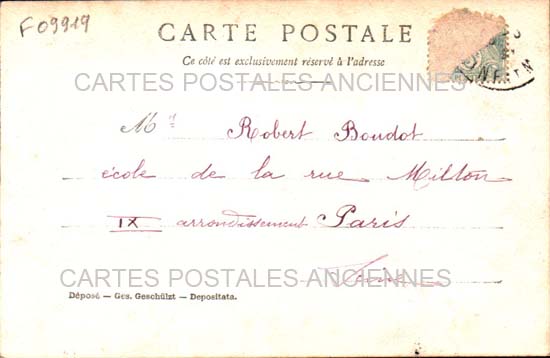 F09919
CARTE POSTALE
Ce côté est exclusivement réservé à l'adresse
CARTES POSTALES ANCIENNES
Robert Boudot
école de la rue Milton
IX arrondissement Paris
CARTES POSTALES ANCIENNES
Seine
Déposé — Ges. Geschützt — Depositata.